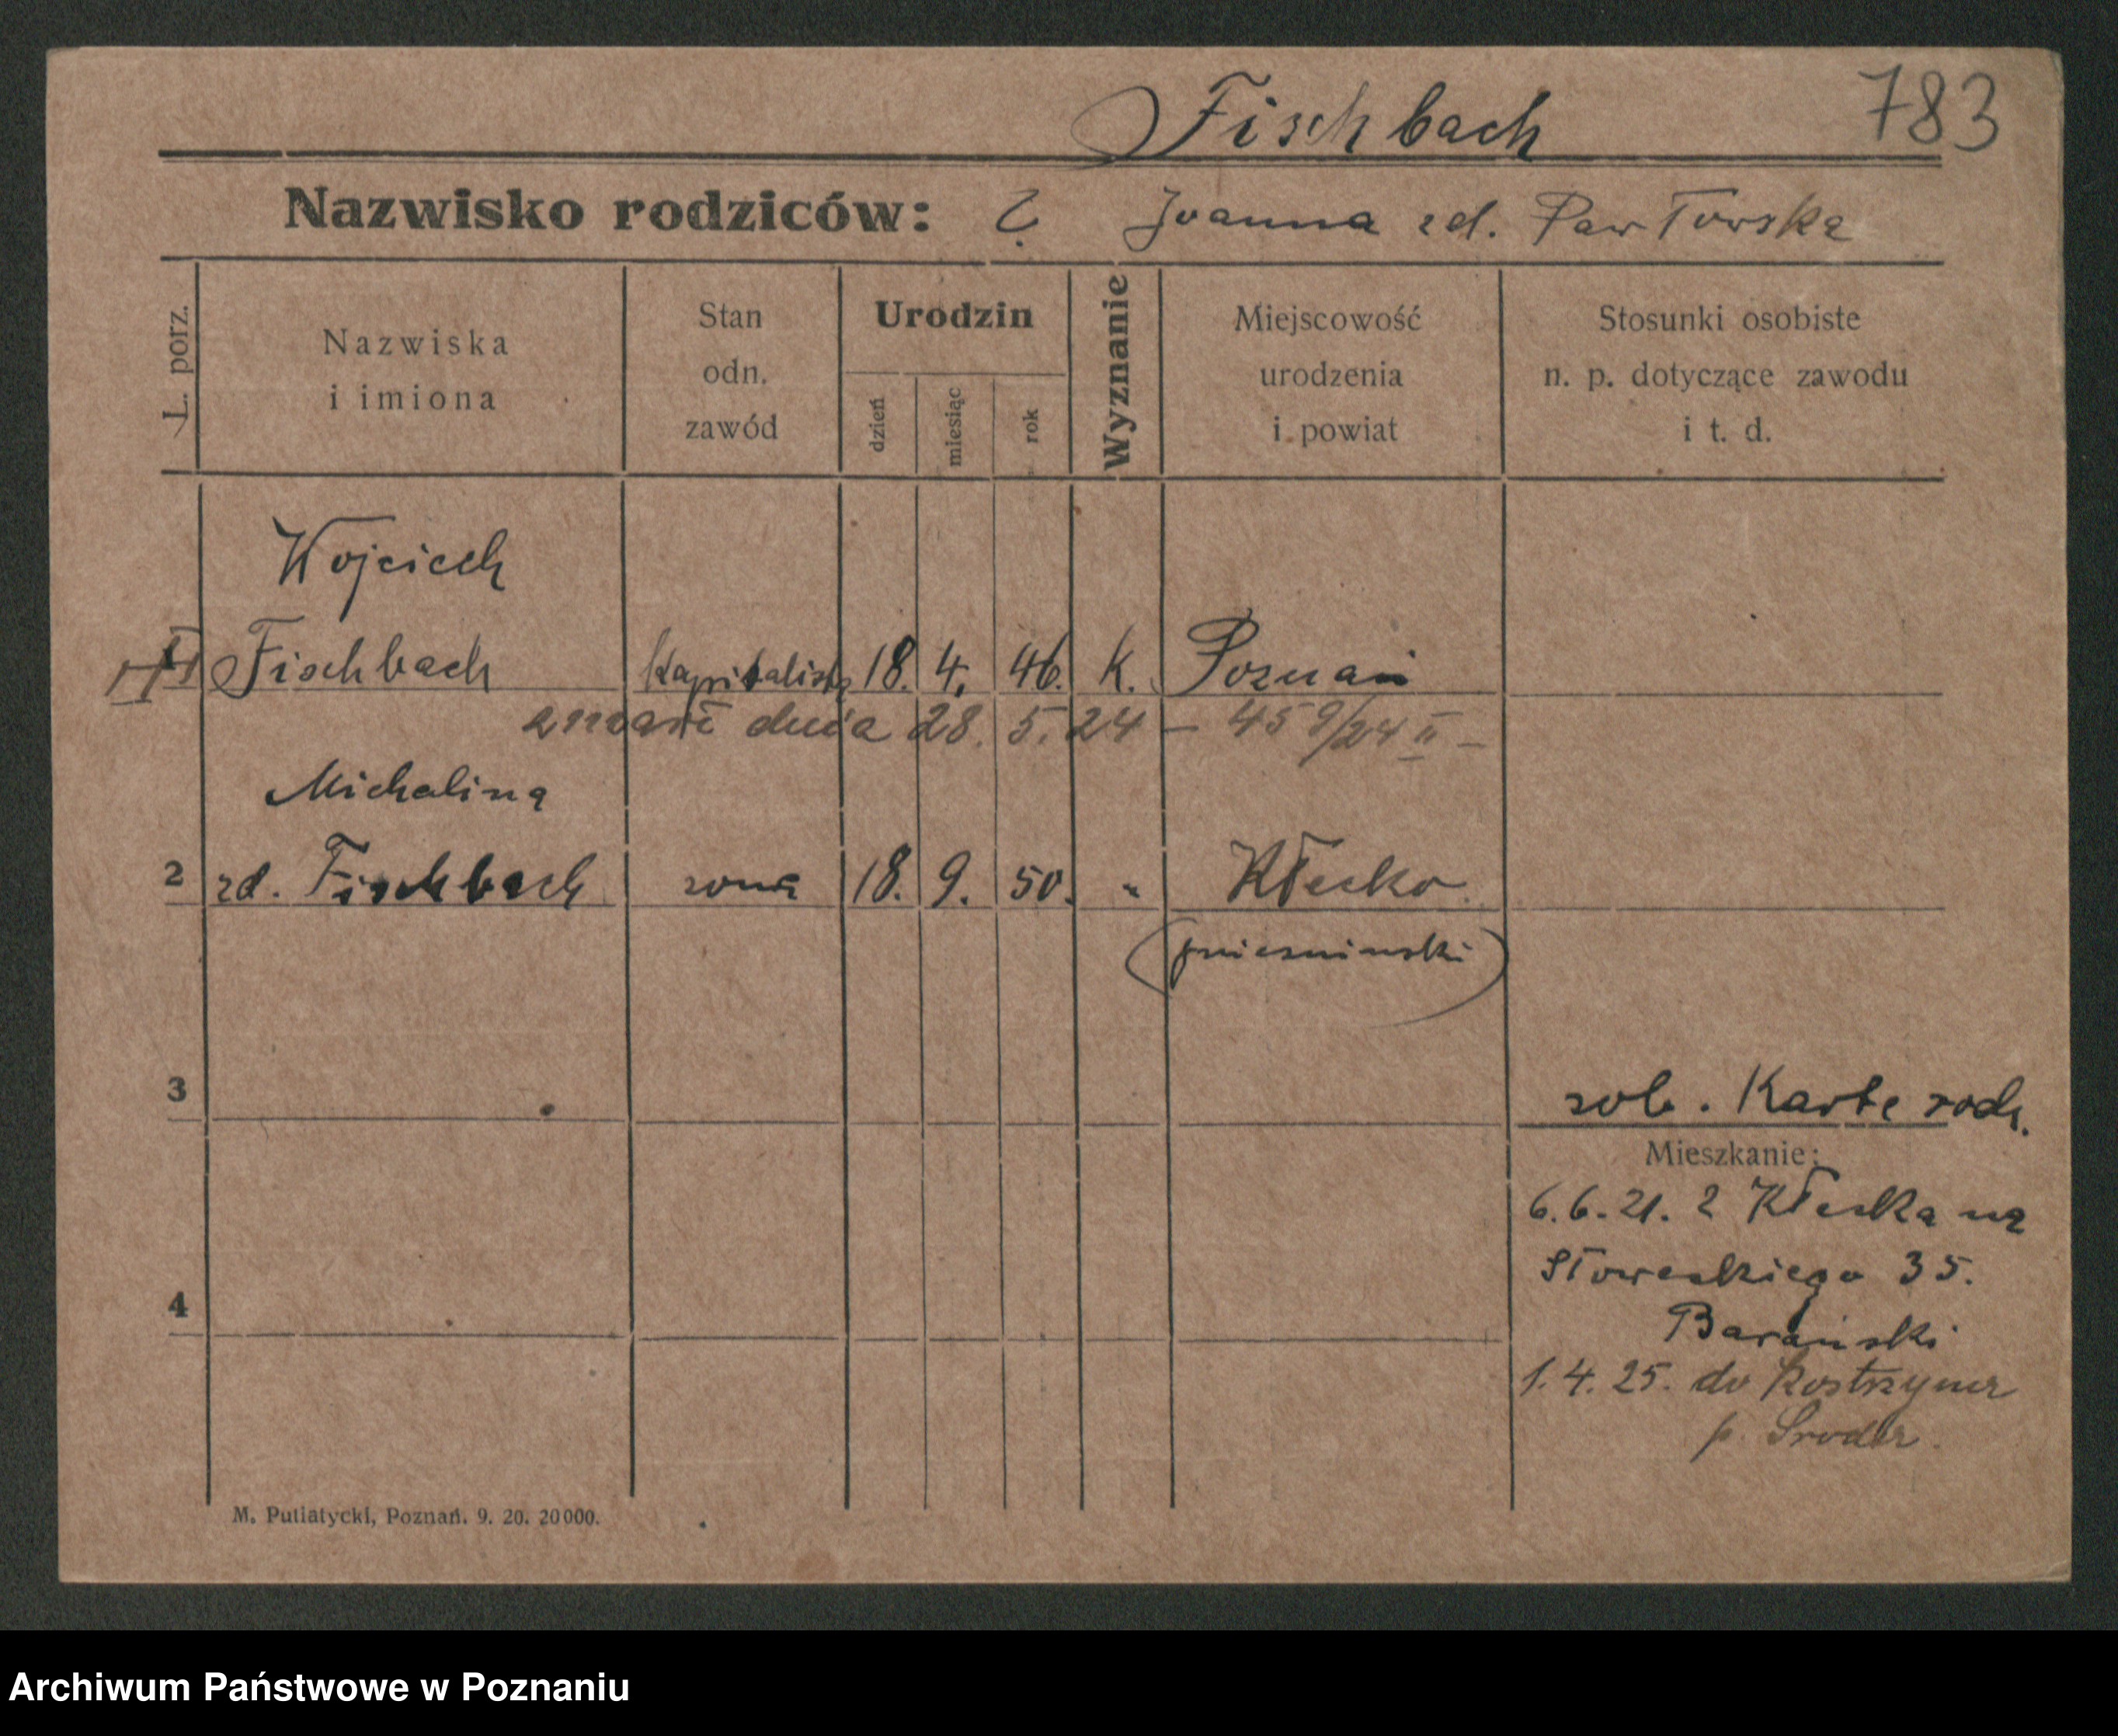 783
Fischbach
Nazwisko rodziców: ? Joanna zd. Pawłowska
L. porz.
Nazwiska i imiona
Stan odn. zawód
Urodzin
dzień miesiąc rok
Wyznanie
Miejscowość urodzenia i powiat
Stosunki osobiste n. p. dotyczące zawodu i t. d.
Wojciech
1 Fischbach Kapitalista 18. 4. 46. K. Poznań
zmarł dnia 28. 5. 24 – 459/24 II –
Michalina
2 zd. Fischbach żona 18. 9. 50. " Kłecko
(gnieźnieński)
3
zob. Kartę rodz.
Mieszkanie:
6.6.21. z Kłecka na
Słowackiego 35.
4
Barański
1.4.25. do Kostrzyna
p. Środa.
M. Putiatycki, Poznań. 9. 20. 20000.
Archiwum Państwowe w Poznaniu